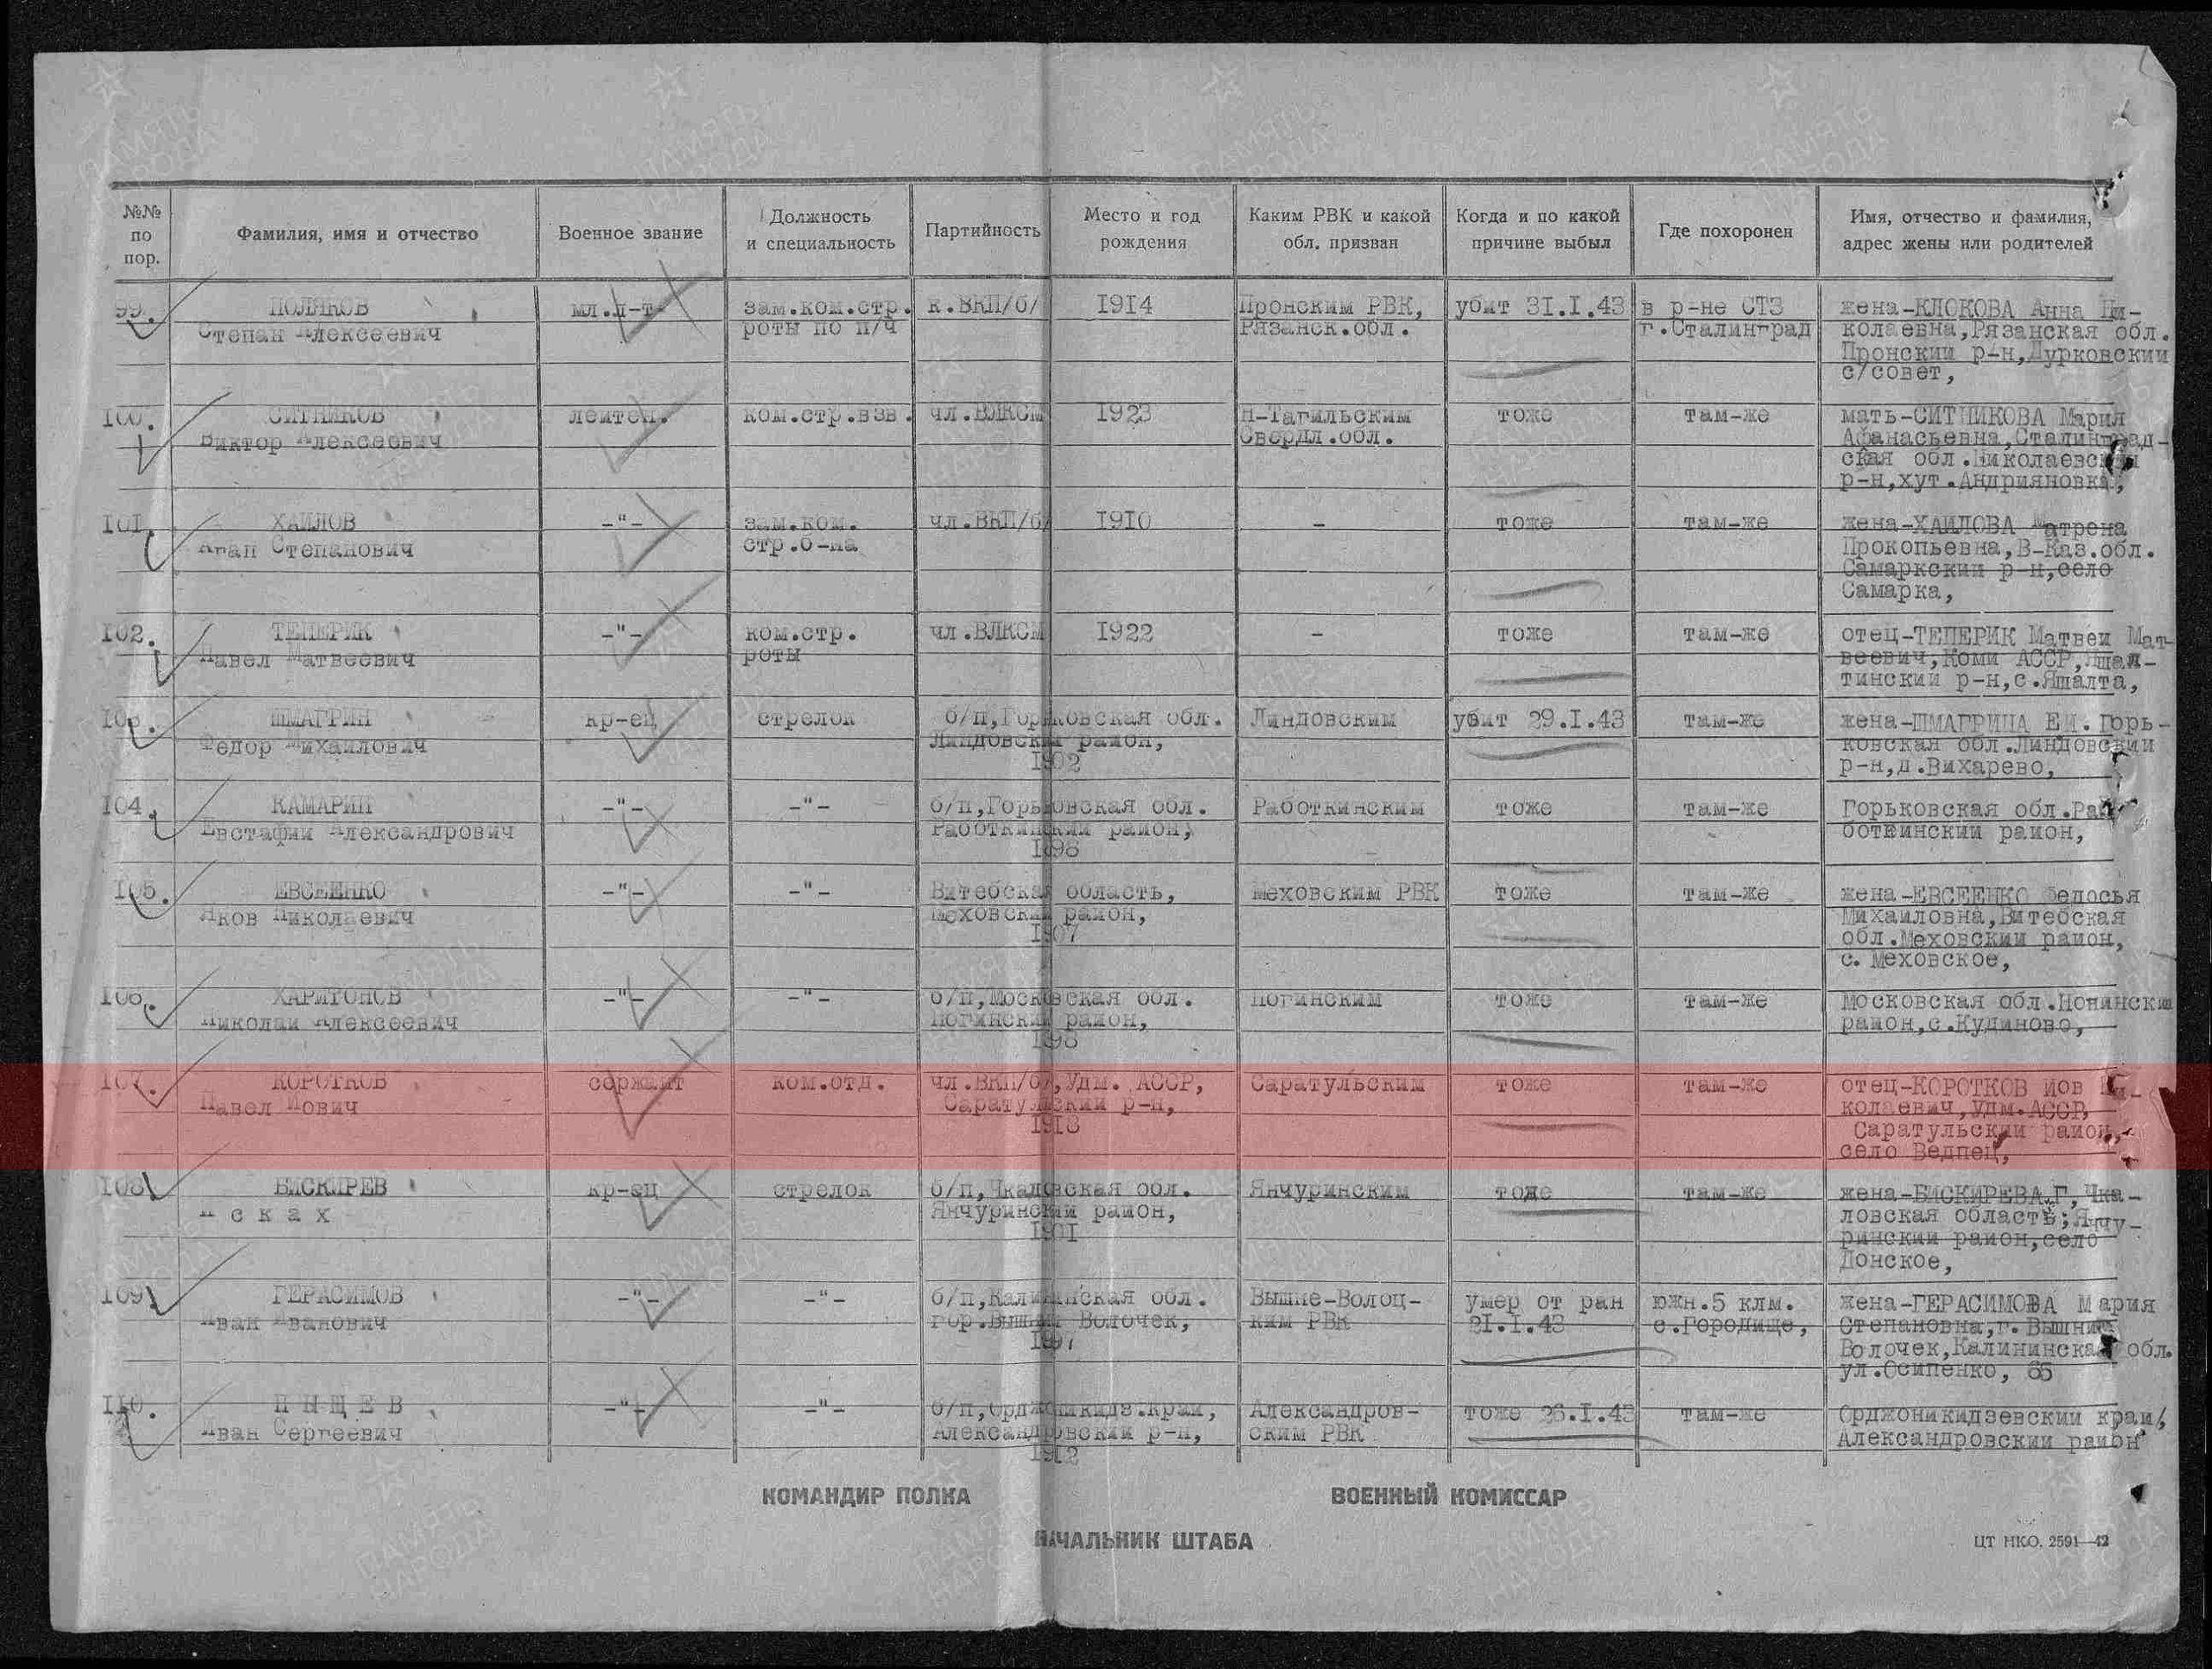 №№ по пор.
Фамилия, имя и отчество
Военное звание
Должность и специальность
Партийность
Место и год рождения
Каким РВК и какой обл. призван
Когда и по какой причине выбыл
Где похоронен
Имя, отчество и фамилия, адрес жены или родителей
99. ПОЛЯКОВ мл.л-т зам.ком.стр. к.ВКП/б/ 1914 Пронским РВК, убит 31.I.43 в р-не СТЗ жена-КЛОКОВА Анна Ни-
Степан Алексеевич роты по п/ч Рязанск.обл. г.Сталинград колаевна,Рязанская обл.
Пронский р-н,Дурковский
с/совет,
100. СИТНИКОВ лейтен. ком.стр.взв. чл.ВЛКСМ 1923 Н-Тагильским тоже там-же мать-СИТНИКОВА Мария
Виктор Алексеевич Свердл.обл. Афанасьевна,Сталинград-
ская обл.Николаевский
р-н,хут.Андрияновка,
101. ХАИЛОВ -"- зам.ком. чл.ВКП/б/ 1910 - тоже там-же жена-ХАИЛОВА Матрена
Степанович стр.б-на Прокопьевна,В-Каз.обл.
Самаркский р-н,село
Самарка,
102. ТЕПЕРИК -"- ком.стр. чл.ВЛКСМ 1922 - тоже там-же отец-ТЕПЕРИК Матвей Мат-
Павел Матвеевич роты веевич,Коми АССР,Яшал-
тинский р-н,с.Яшалта,
103. ШМАГРИН кр-ец стрелок б/п,Горьковская обл. Линдовским убит 29.I.43 там-же жена-ШМАГРИНА ЕМ. Горь-
Федор Михайлович Линдовский район, ковская обл.Линдовский
1902 р-н,д.Вихарево,
104. КАМАРИН -"- -"- б/п,Горьковская обл. Работкинским тоже там-же Горьковская обл.Ра
Евстафий Александрович Работкинский район, боткинский район,
1898
105. ЕВСЕЕНКО -"- -"- Витебская область, Меховским РВК тоже там-же жена-ЕВСЕЕНКО Федосья
Яков Николаевич Меховский район, Михайловна,Витебская
1907 обл.Меховский район,
с. Меховское,
106. ХАРИТОНОВ -"- -"- б/п,Московская обл. Ногинским тоже там-же Московская обл.Ногинский
Николай Алексеевич Ногинский район, район,с.Кудиново,
107. КОРОТКОВ сержант ком.отд. чл.ВКП/б/,Удм. АССР, Саратульским тоже там-же отец-КОРОТКОВ Иов Ни-
Павел Иович Саратульский р-н, колаевич,Удм.АССР,
1913 Саратульский район,
село Ведпец,
108. БИСКИРЕВ кр-ец стрелок б/п,Чкаловская обл. Янчуринским тоже там-же жена-БИСКИРЕВА.Г,Чка-
И с к а х Янчуринский район, ловская область;Янчу-
1901 ринский район,село
Донское,
109. ГЕРАСИМОВ -"- -"- б/п,Калининская обл. Вышне-Волоц- умер от ран южн.5 клм. жена-ГЕРАСИМОВА Мария
Иван Иванович гор.Вышний Волочек, ким РВК 21.I.43 с.Городище, Степановна,г.Вышний
Волочек,Калининская обл.
ул.Осипенко, 65
110. П Ы Щ Е В -"- -"- б/п,Орджоникидз.край, Александров- тоже 26.I.43 там-же Орджоникидзевский край,
Иван Сергеевич Александровский р-н, ским РВК Александровский район
1912
КОМАНДИР ПОЛКА ВОЕННЫЙ КОМИССАР
НАЧАЛЬНИК ШТАБА
ЦТ НКО. 2591—42
ПАМЯТЬ НАРОДА